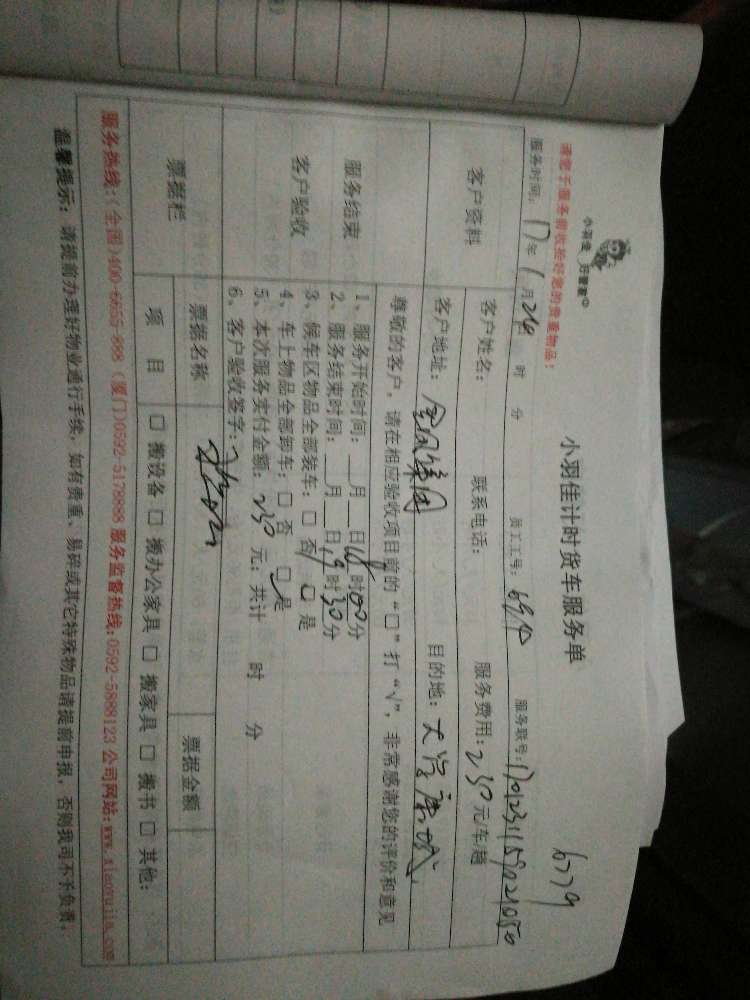 6779
小羽佳 好管家
小羽佳计时货车服务单
请您于服务前收拾好您的贵重物品!
服务时间: 17年 1月24日 时 分 员工工号: 服务联号:
客户资料 客户姓名: 联系电话: 服务费用:230元/车/趟
客户地址: 集团 目的地: 唐城
尊敬的客户,请在相应验收项目前的“□”打“√”,非常感谢您的评价和意见
服务结束
客户验收
1、服务开始时间:__月__日18时00分
2、服务结束时间:__月__日19时30分
3、候车区物品全部装车:□ 否 □ 是
4、车上物品全部卸车:□ 否 □ 是
5、本次服务实付金额:230元;共计 时 分
6、客户验收签字:
票据栏 票据名称 票据金额
项 目 □ 搬设备 □ 搬办公家具 □ 搬家具 □ 搬书 □ 其他:
服务热线:(全国)400-6655-888 (厦门)0592-5178888 服务监督热线:0592-5888123 公司网站:www.xiaoyujia.com
温馨提示: 请提前办理好物业通行手续,如有贵重、易碎或其它特殊物品请提前申报,否则我司不予负责。